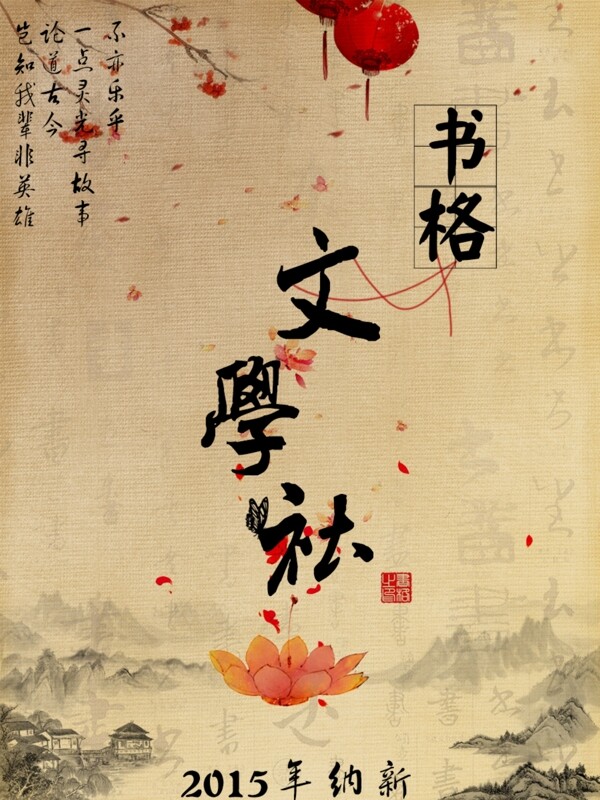 书格
文學社
不亦乐乎
一点灵光寻故事
论道古今
岂知我辈非英雄
2015年纳新